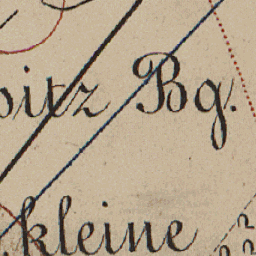 itz Bg.
kleine